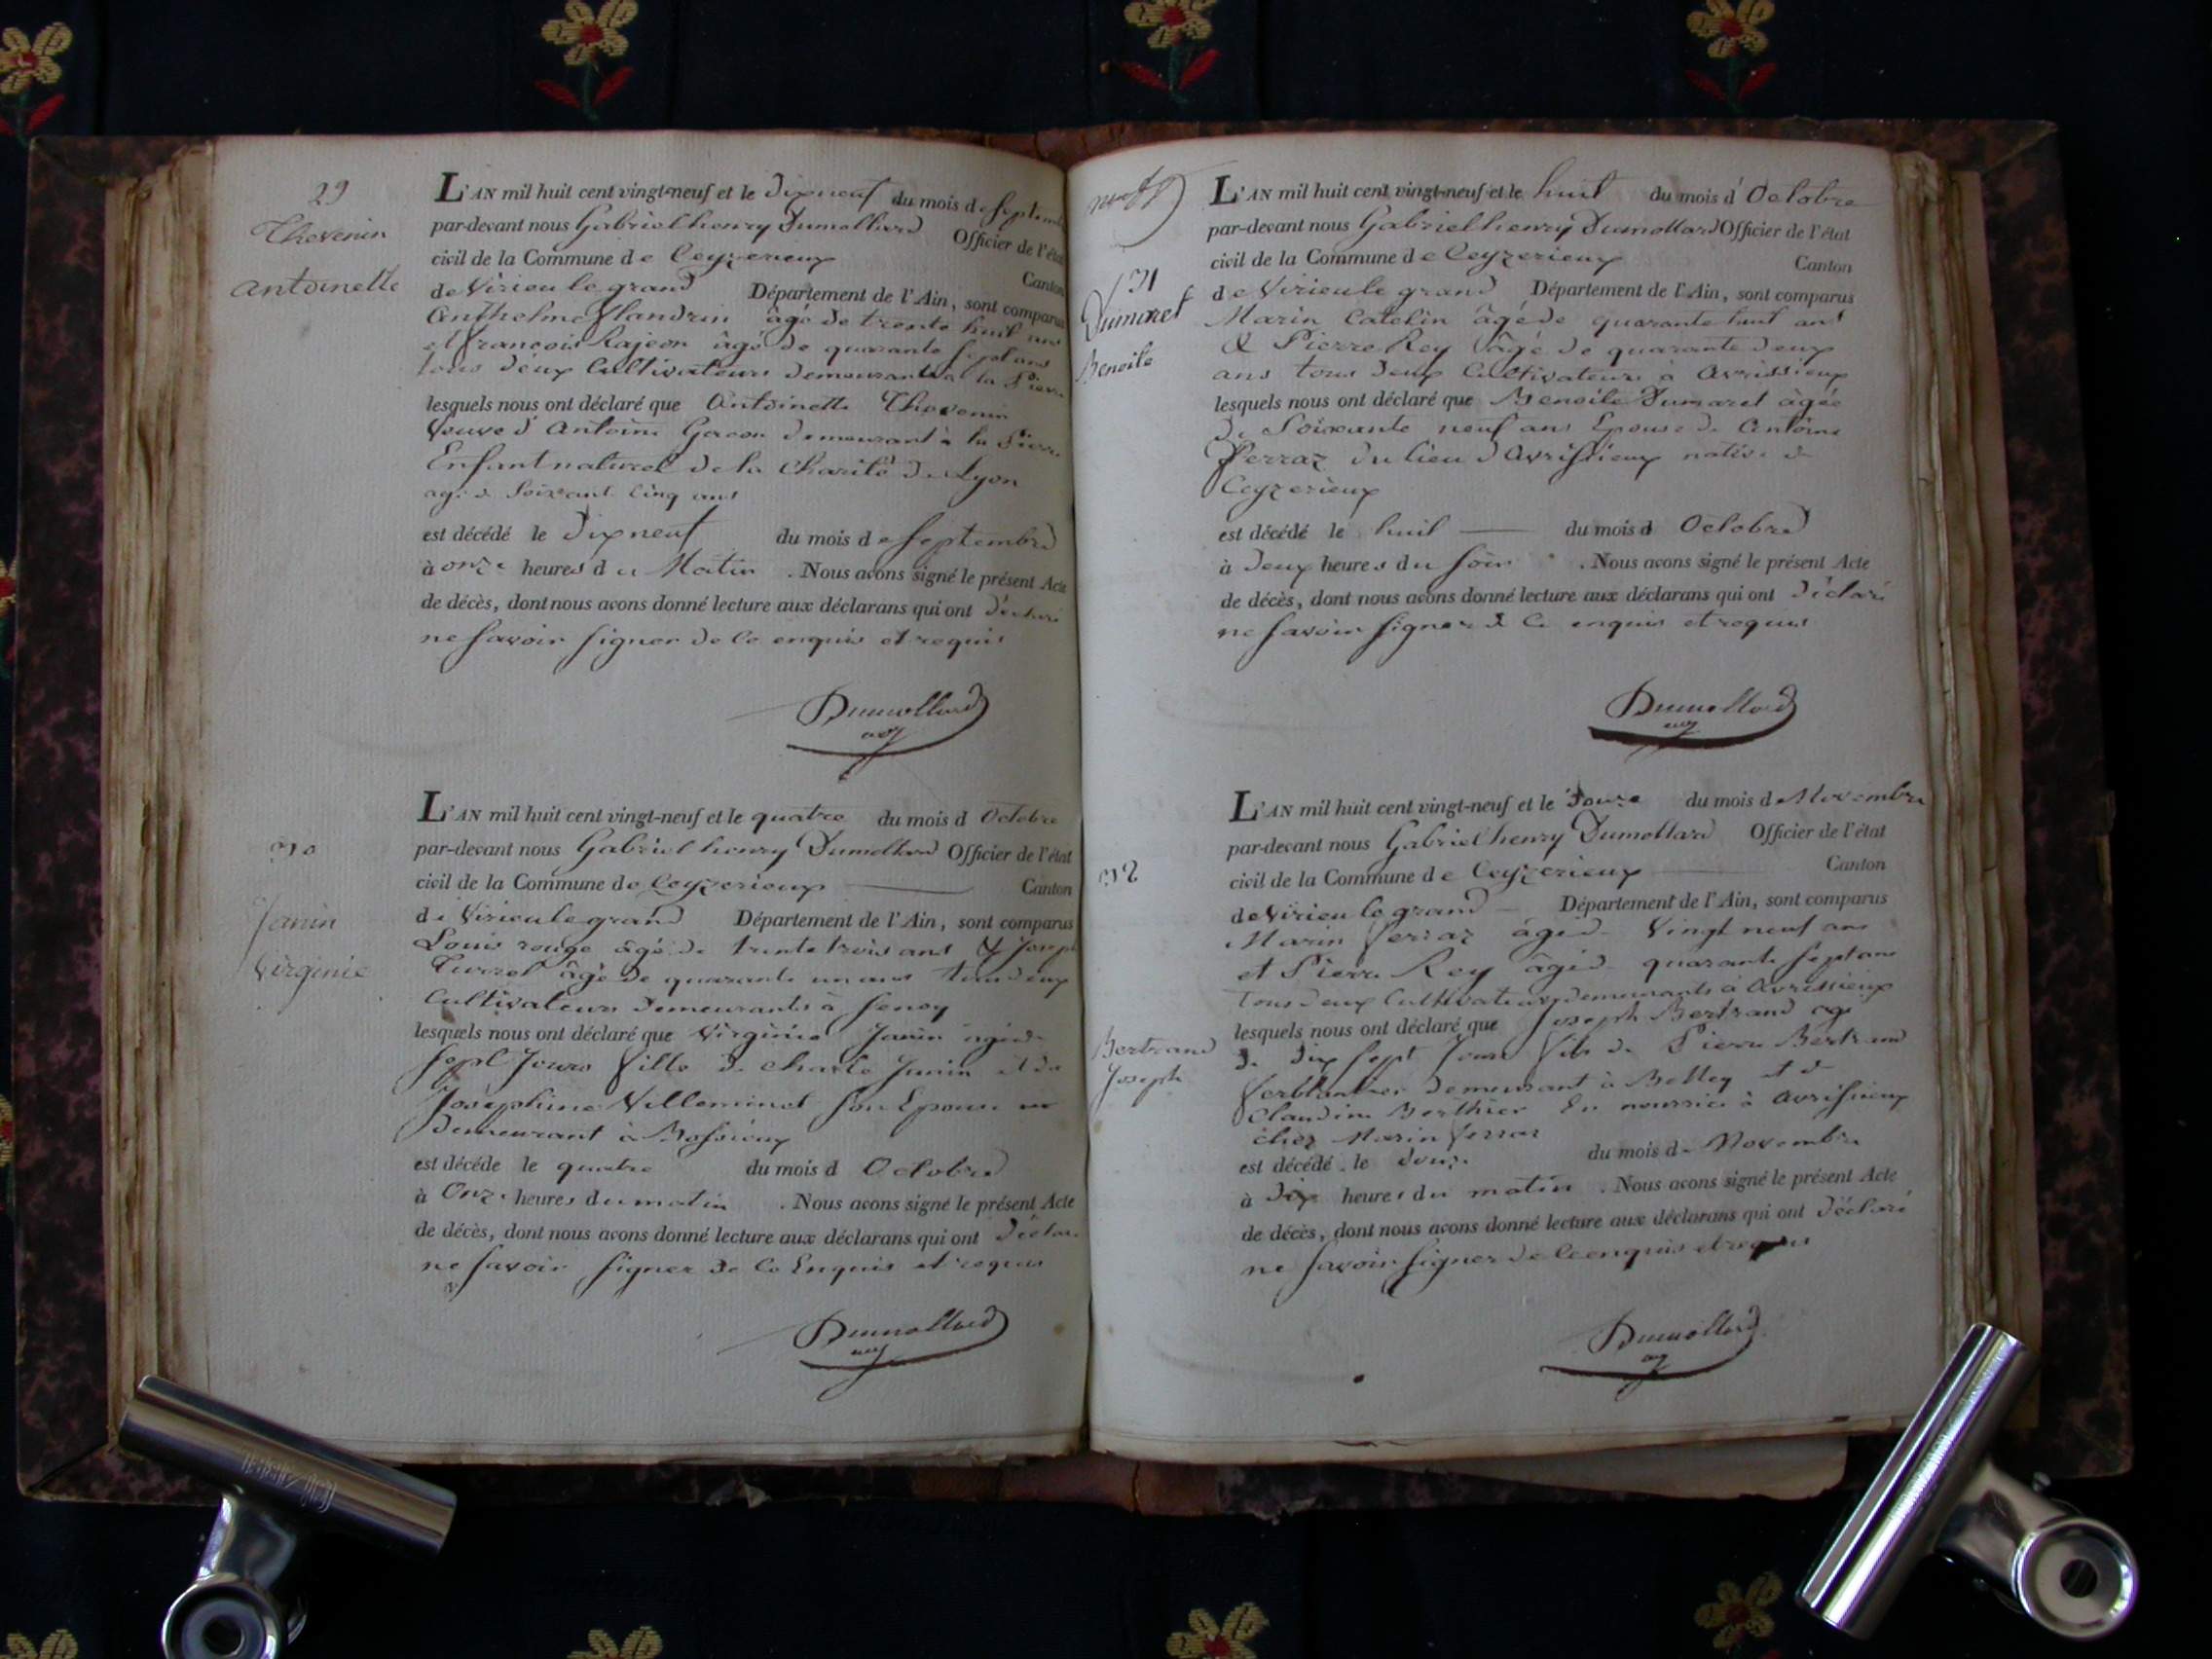 29
Thevenin
antoinette
L'AN mil huit cent vingt-neuf et le dix neuf du mois de septembre
par-devant nous Gabriel henry Dumollard Officier de l'état
civil de la Commune de Ceyzerieux Canton
de Virieu le grand Département de l'Ain, sont comparus
Anthelme flandrin âgé de trente huit ans
et francois Rajeon âgé de quarante sept ans
tous deux Cultivateurs demeurants a la Pierre
lesquels nous ont déclaré que Antoinette Thevenin
Veuve d'Antoine Gacon demeurant à la Pierre
Enfant naturel de la Charité de Lyon
agé de Soixant Cinq ans
est décédé le dix neuf du mois de septembre
à onze heures du Matin . Nous avons signé le présent Acte
de décès, dont nous avons donné lecture aux déclarans qui ont déclaré
ne savoir signer de Ce enquis et requis
Dumollard
30
Janin
Virginie
L'AN mil huit cent vingt-neuf et le quatre du mois d Octobre
par-devant nous Gabriel henry Dumollard Officier de l'état
civil de la Commune de Ceyzerieux Canton
de Virieu le grand Département de l'Ain, sont comparus
Louis rouge âgé de trente trois ans & Joseph
âgé de quarante un ans tous deux
Cultivateurs demeurants à
lesquels nous ont déclaré que Virginie Janin agée de
sept Jours fille de Charle Janin et de
Joséphine Villeminot son Epouse
Demeurant à Bossieux
est décédé le quatre du mois d Octobre
à Onze heures du matin . Nous avons signé le présent Acte
de décès, dont nous avons donné lecture aux déclarans qui ont déclaré
ne savoir signer de Ce Enquis et requis
Dumollard
31
Dumaret
Benoite
L'AN mil huit cent vingt-neuf et le huit du mois d' Octobre
par-devant nous Gabriel henry Dumollard Officier de l'état
civil de la Commune de Ceyzerieux Canton
de Virieu le grand Département de l'Ain, sont comparus
Marin Catelin âgé de quarante huit ans
& Pierre Rey âgé de quarante deux
ans tous deux Cultivateurs a Avrissieux
lesquels nous ont déclaré que Benoite Dumaret âgée
de Soixante neuf ans Epouse de Antoine
Perraz du lieu d'Avrissieux native de
Ceyzerieux
est décédé le huit du mois d Octobre
à Deux heures du soir . Nous avons signé le présent Acte
de décès, dont nous avons donné lecture aux déclarans qui ont déclaré
ne savoir signer de Ce enquis et requis
Dumollard
32
Bertrand
Joseph
L'AN mil huit cent vingt-neuf et le douze du mois de Novembre
par-devant nous Gabriel henry Dumollard Officier de l'état
civil de la Commune de Ceyzerieux Canton
de Virieu le grand Département de l'Ain, sont comparus
Marin ferraz âgé de Vingt neuf ans
et Pierre Rey âgé de quarante sept ans
tous deux Cultivateurs demeurants à Avrissieux
lesquels nous ont déclaré que Joseph Bertrand agé
de dix sept Jours fils de Pierre Bertrand
ferblantier demeurant à Belley et de
Claudine Berthier En nourrice à Avrissieux
chez Marin ferraz
est décédé le douze du mois de Novembre
à dix heures du matin . Nous avons signé le présent Acte
de décès, dont nous avons donné lecture aux déclarans qui ont déclaré
ne savoir signer de Ce enquis et requis
Dumollard